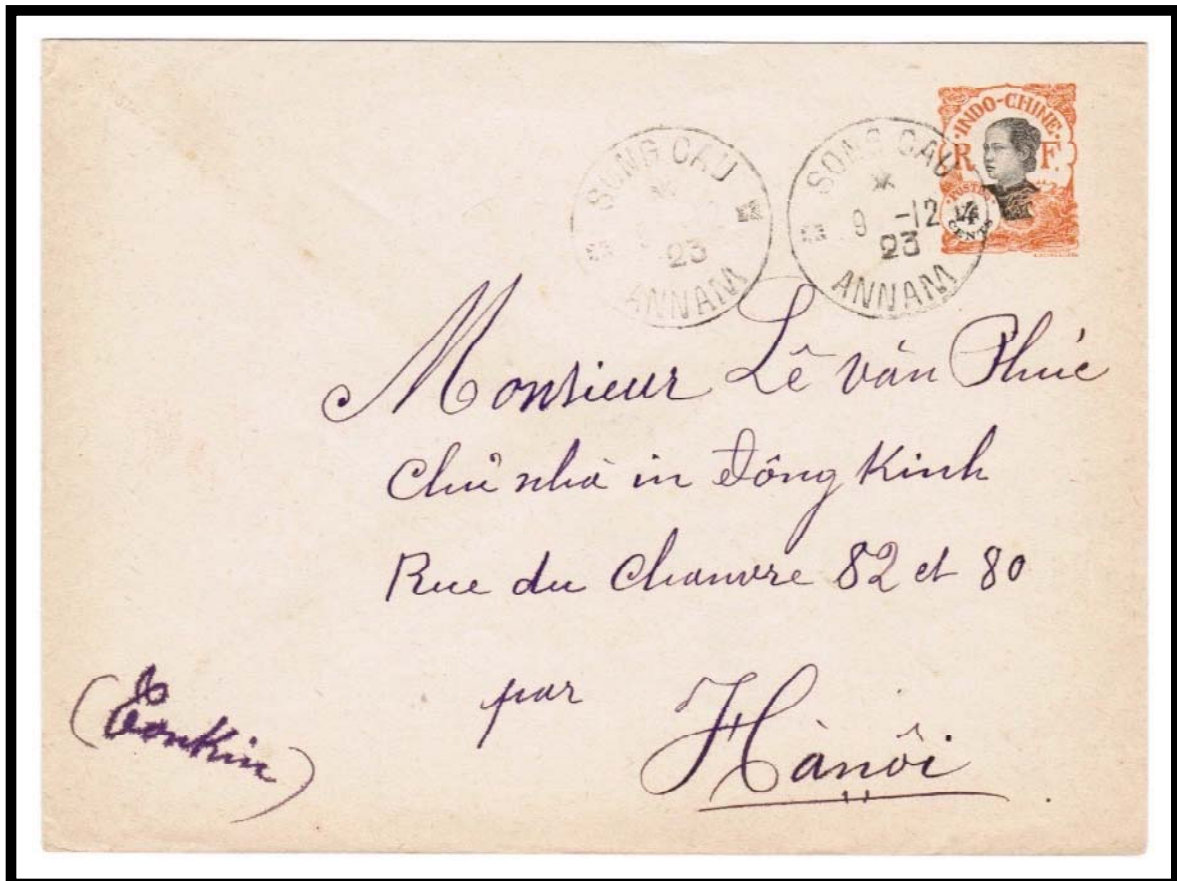 INDO-CHINE
R F.
POSTES
4
CENTS
SONG CAU
23
ANNAM
SONG CAU
9 -12
23
ANNAM
Monsieur Lê Văn Phúc
Chủ nhà in Đông Kinh
Rue du Chanvre 82 et 80
par
Hànôi
(Tonkin)